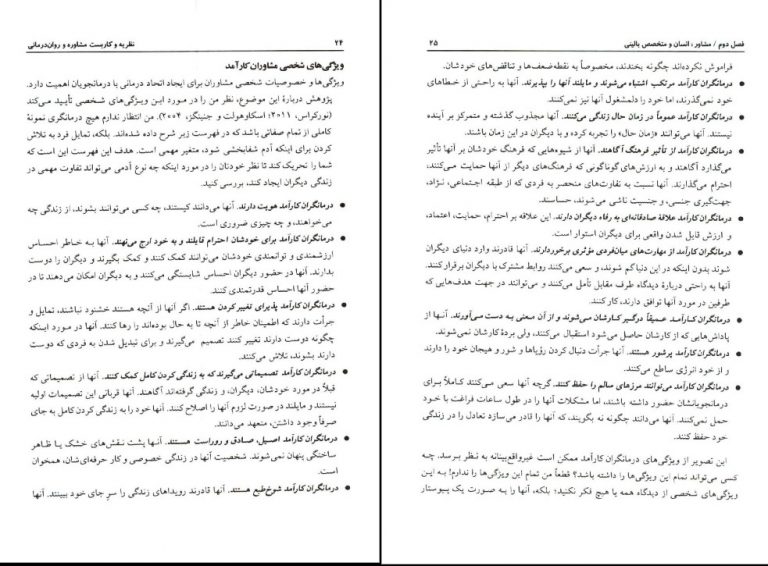 ۲۴ نظریه و کاربست مشاوره و روان‌درمانی
ویژگی‌های شخصی مشاوران کارآمد
ویژگی‌ها و خصوصیات شخصی مشاوران برای ایجاد اتحاد درمانی با درمانجویان اهمیت دارد.
پژوهش دربارهٔ این موضوع، نظر من را در مورد این ویژگی‌های شخصی تأیید می‌کند
(نورکراس، ۲۰۱۱؛ اسکاوهولت و جنینگز، ۲۰۰۴). من انتظار ندارم هیچ درمانگری نمونهٔ
کاملی از تمام صفاتی باشد که در فهرست زیر شرح داده شده‌اند. بلکه، تمایل فرد به تلاش
کردن برای اینکه آدم شفابخشی شود، متغیر مهمی است. هدف این فهرست این است که
شما را تحریک کند تا نظر خودتان را در مورد اینکه چه نوع آدمی می‌تواند تفاوت مهمی در
زندگی دیگران ایجاد کند، بررسی کنید.
● درمانگران کارآمد هویت دارند. آنها می‌دانند کیستند، چه کسی می‌توانند بشوند، از زندگی چه
می‌خواهند، و چه چیزی ضروری است.
● درمانگران کارآمد برای خودشان احترام قایلند و به خود ارج می‌نهند. آنها به خاطر احساس
ارزشمندی و توانمندی خودشان می‌توانند کمک کنند و کمک بگیرند و دیگران را دوست
بدارند. آنها در حضور دیگران احساس شایستگی می‌کنند و به دیگران امکان می‌دهند تا در
حضور آنها احساس قدرتمندی کنند.
● درمانگران کارآمد پذیرای تغییر کردن هستند. اگر آنها از آنچه هستند خشنود نباشند، تمایل و
جرأت دارند که اطمینان خاطر از آنچه تا به حال بوده‌اند را رها کنند. آنها در مورد اینکه
چگونه دوست دارند تغییر کنند تصمیم می‌گیرند و برای تبدیل شدن به فردی که دوست
دارند بشوند، تلاش می‌کنند.
● درمانگران کارآمد تصمیماتی می‌گیرند که به زندگی کردن کامل کمک کنند. آنها از تصمیماتی که
قبلاً در مورد خودشان، دیگران، و زندگی گرفته‌اند آگاهند. آنها قربانی این تصمیمات اولیه
نیستند و مایلند در صورت لزوم آنها را اصلاح کنند. آنها خود را به زندگی کردن کامل به جای
صرفاً وجود داشتن، متعهد می‌دانند.
● درمانگران کارآمد اصیل، صادق و روراست هستند. آنها پشت نقش‌های خشک یا ظاهر
ساختگی پنهان نمی‌شوند. شخصیت آنها در زندگی خصوصی و کار حرفه‌ای‌شان، همخوان
است.
● درمانگران کارآمد شوخ‌طبع هستند. آنها قادرند رویدادهای زندگی را سر جای خود ببینند. آنها
فصل دوم / مشاور: انسان و متخصص بالینی ۲۵
فراموش نکرده‌اند چگونه بخندند، مخصوصاً به نقطه‌ضعف‌ها و تناقض‌های خودشان.
● درمانگران کارآمد مرتکب اشتباه می‌شوند و مایلند آنها را بپذیرند. آنها به راحتی از خطاهای
خود نمی‌گذرند، اما خود را دلمشغول آنها نیز نمی‌کنند.
● درمانگران کارآمد عموماً در زمان حال زندگی می‌کنند. آنها مجذوب گذشته و متمرکز بر آینده
نیستند. آنها می‌توانند «زمان حال» را تجربه کرده و با دیگران در این زمان باشند.
● درمانگران کارآمد از تأثیر فرهنگ آگاهند. آنها از شیوه‌هایی که فرهنگ خودشان بر آنها تأثیر
می‌گذارد آگاهند و به ارزش‌های گوناگونی که فرهنگ‌های دیگر از آنها حمایت می‌کنند،
احترام می‌گذارند. آنها نسبت به تفاوت‌های منحصر به فردی که از طبقه اجتماعی، نژاد،
جهت‌گیری جنسی، و جنسیت ناشی می‌شوند، حساسند.
● درمانگران کارآمد علاقهٔ صادقانه‌ای به رفاه دیگران دارند. این علاقه بر احترام، حمایت، اعتماد،
و ارزش قایل شدن واقعی برای دیگران استوار است.
● درمانگران کارآمد از مهارت‌های میان‌فردی مؤثری برخوردارند. آنها قادرند وارد دنیای دیگران
شوند بدون اینکه در این دنیا گم شوند، و سعی می‌کنند روابط مشترک با دیگران برقرار کنند.
آنها به راحتی دربارهٔ دیدگاه طرف مقابل تأمل می‌کنند و می‌توانند در جهت هدف‌هایی که
طرفین در مورد آنها توافق دارند، کار کنند.
● درمانگران کارآمد عمیقاً درگیر کارشان می‌شوند و از آن معنی به دست می‌آورند. آنها از
پاداش‌هایی که از کارشان حاصل می‌شود استقبال می‌کنند، ولی بردهٔ کارشان نمی‌شوند.
● درمانگران کارآمد پرشور هستند. آنها جرأت دنبال کردن رؤیاها و شور و هیجان خود را دارند
و از خود انرژی ساطع می‌کنند.
● درمانگران کارآمد می‌توانند مرزهای سالم را حفظ کنند. گرچه آنها سعی می‌کنند کاملاً برای
درمانجویانشان حضور داشته باشند، اما مشکلات آنها را در طول ساعات فراغت با خود
حمل نمی‌کنند. آنها می‌دانند چگونه نه بگویند، که آنها را قادر می‌سازد تعادل را در زندگی
خود حفظ کنند.
این تصویر از ویژگی‌های درمانگران کارآمد ممکن است غیرواقع‌بینانه به نظر برسد. چه
کسی می‌تواند تمام این ویژگی‌ها را داشته باشد؟ قطعاً من تمام این ویژگی‌ها را ندارم! به این
ویژگی‌های شخصی از دیدگاه همه یا هیچ فکر نکنید؛ بلکه، آنها را به صورت یک پیوستار